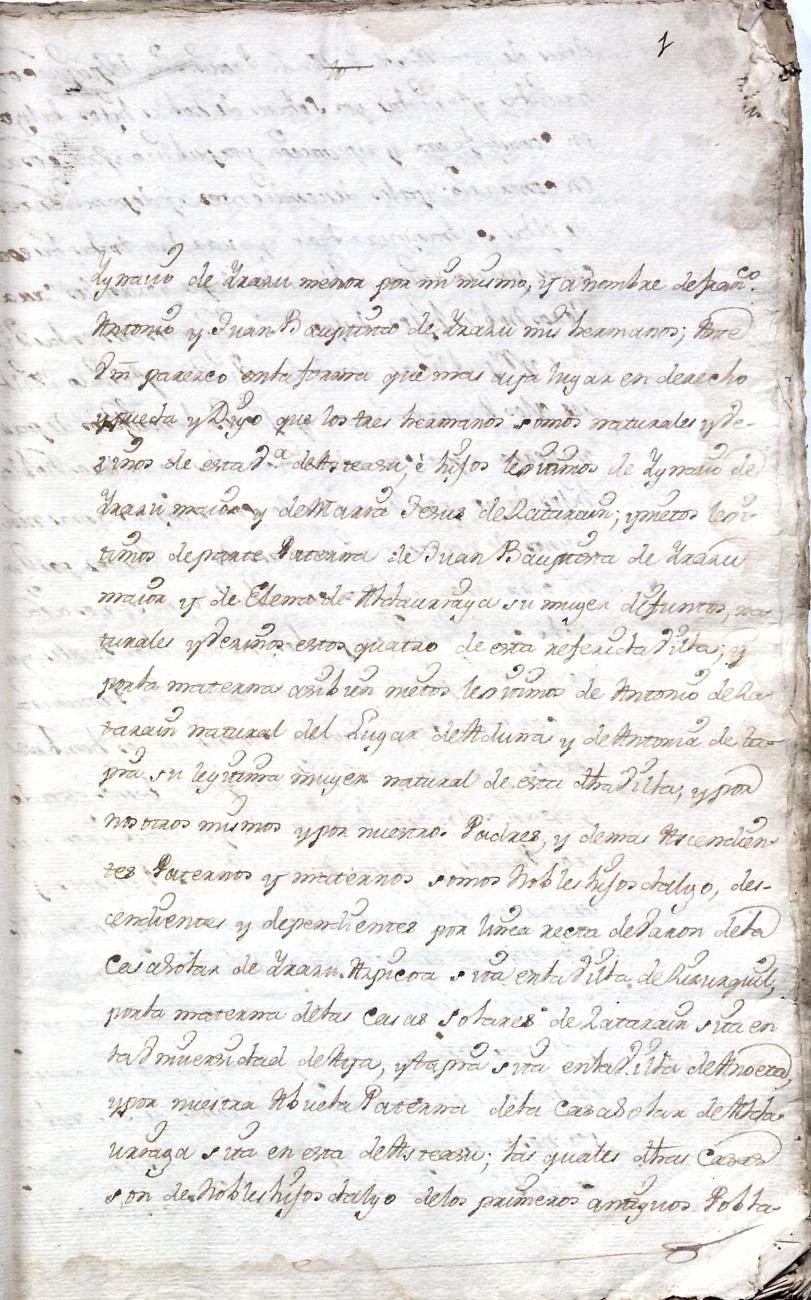 1
Ygnacio de Yrazu menor por mi mismo, y a nombre de fran.co
Antonio y Juan Bauptista de Yrazu mis hermanos; Ante
Vm parezco enla forma que mas aija lugar en derecho
ypueda y Digo que los tres hermanos somos naturales y Ve-
zinos de esta V.a de Asteasu, è hijos lexitimos de Ygnacio de
Yrazu maior y de Maria Jesus de Latarain; ynietos lexi-
timos departe Paterna de Juan Bauptista de Yrazu
maior y de Elena de Aldaurraga su muger difuntos, na-
turales yVezinos estos quatro de esta referida Villa; y
porla materna asibien nietos lexitimos de Antonio de La-
tarain natural del Lugar de Aduna y de Antonia de Ta-
pia su legitima muger natural de esta dha Villa, y por
nosotros mismos y por nuestros Padres, y demas Ascendien-
tes Paternos y maternos somos Nobles hijos dalgo, des-
cendientes y dependientes por linea recta de Varon dela
Casa Solar de Yrazu Aspicoa sita enla Villa de Zizurquil,
porla materna delas Casas Solares de Latarain sita en
la Universidad de Aya, y Tapia sita enla Villa de Anoeta,
y por nuestra Abuela Paterna dela Casa Solar de Alda-
urraga sita en esta de Asteasu; las quales dhas Casas
son de Nobles hijos dalgo delos primeros antiguos Pobla-